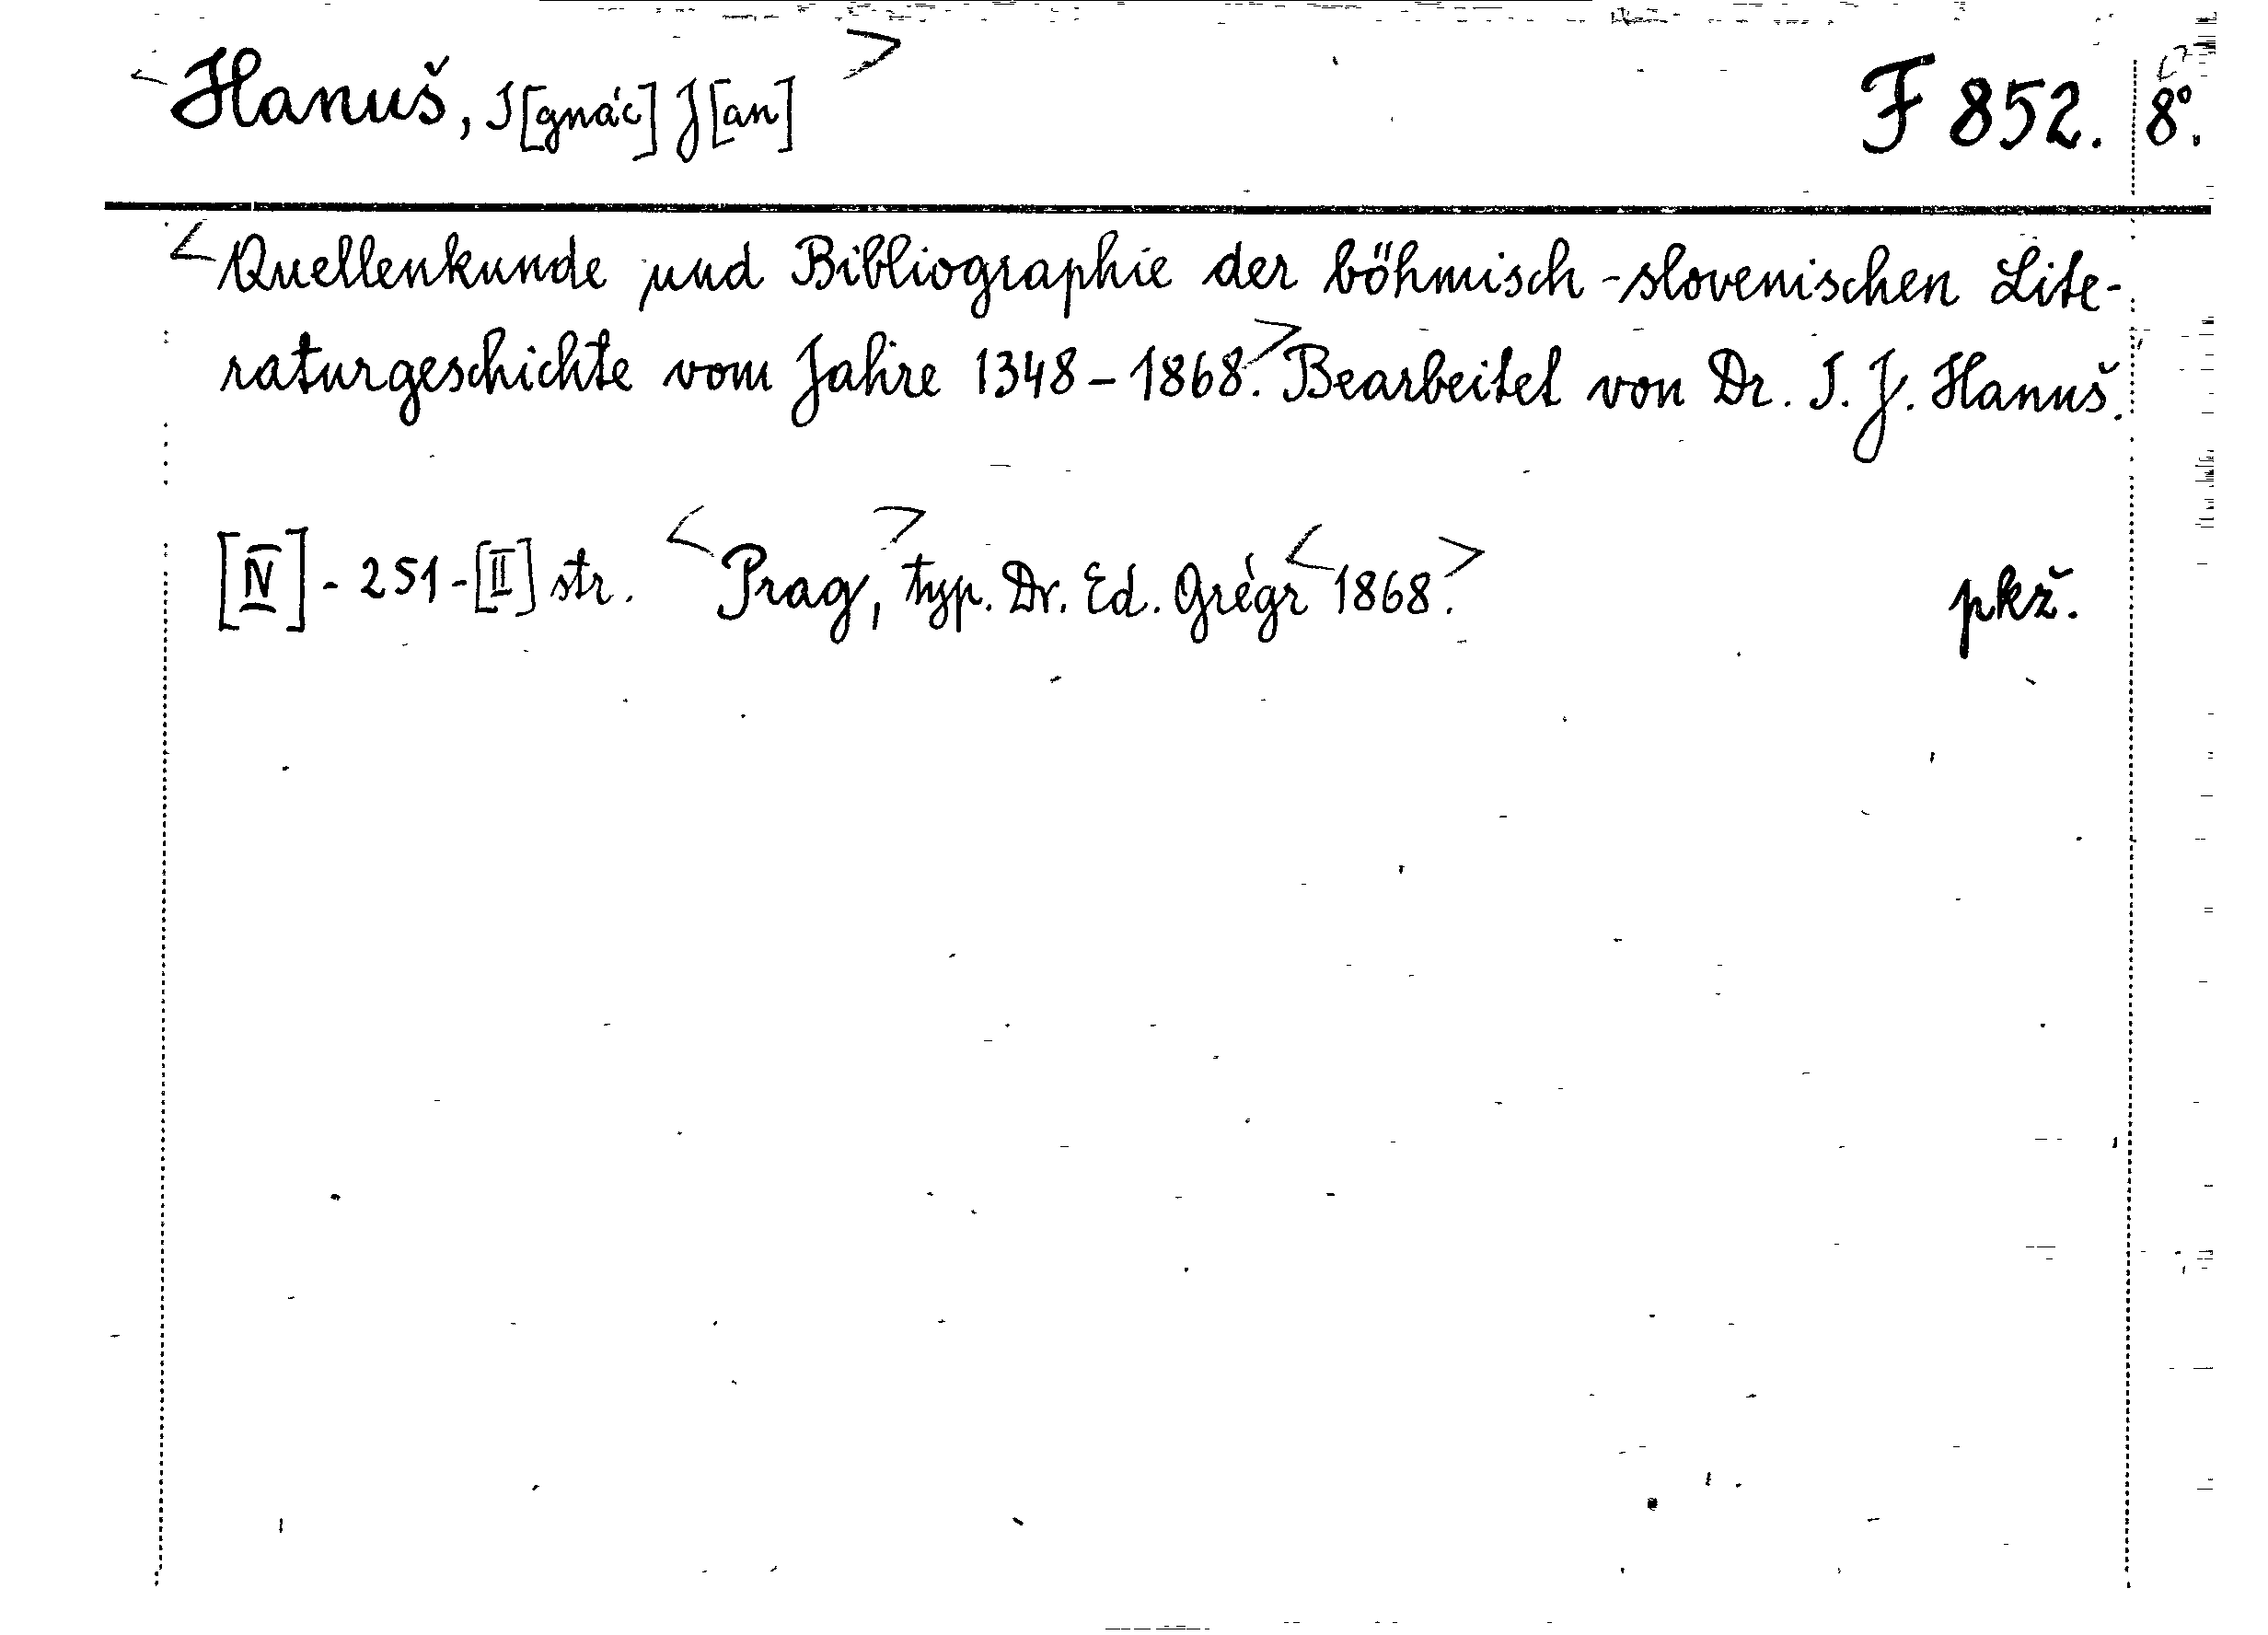 <Hanuš, I[gnác] J[an]> F 852. 8°.
<Quellenkunde und Bibliographie der böhmisch-slovenischen Lite-
raturgeschichte vom Jahre 1348-1868.> Bearbeitet von Dr. I. J. Hanuš.
[IV] - 251 - [II] str. <Prag,> typ. Dr. Ed. Grégr <1868.> pkž.